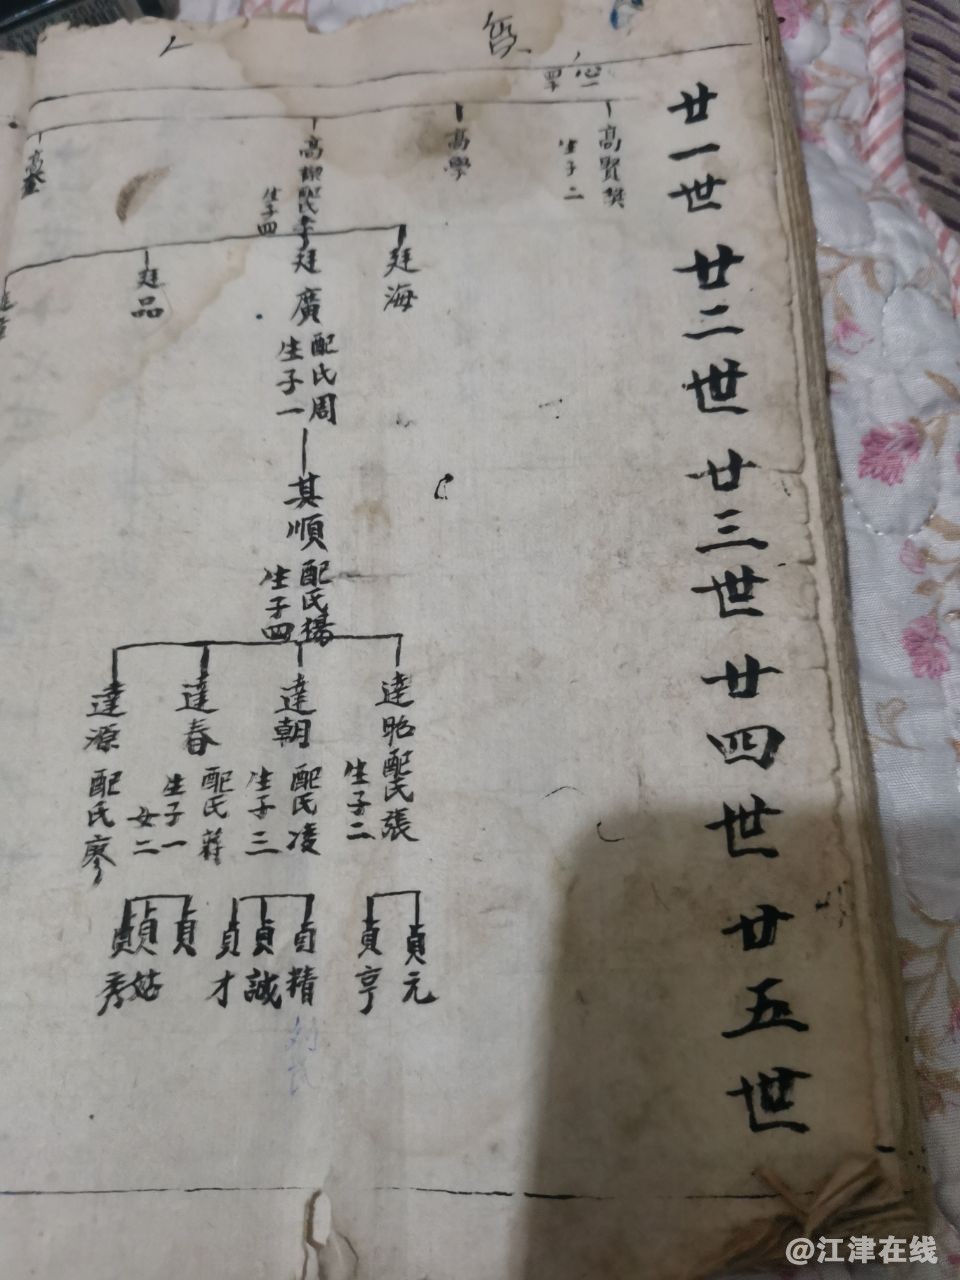 廿一世
廿二世
廿三世
廿四世
廿五世
高賢
生子二
高學
高
配氏李
生子四
廷海
廷廣
配氏周
生子一
廷品
其順
配氏楊
生子四
達昭
配氏張
生子二
達朝
配氏凌
生子三
達春
配氏蔣
生子一
女二
達源
配氏廖
貞元
貞亨
貞精
刘氏
貞誠
貞才
貞
貞姑
貞秀
@江津在线